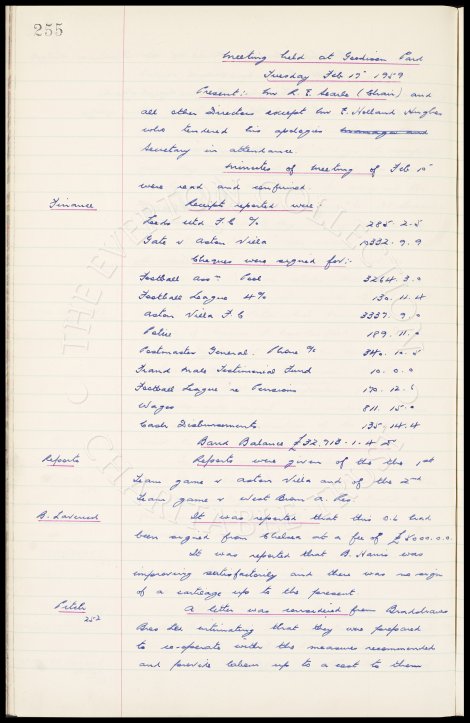 255
Meeting held at Goodison Park
Tuesday Feb 17 1959
Present:- Mr R. E. Searle (Chair) and
all other Directors except Mr E. Holland Hughes
who tendered his apologies
Secretary in attendance.
Minutes of meeting of Feb 10
were read and confirmed
Finance Receipts reported were:-
Leeds Utd F.C %
Gate v Aston Villa
Cheques were signed for:-
Football Assn Pool 3264. 3. 0
Football League 4% 130. 11. 4
Aston Villa F.C 3337. 9. 0
Police 189. 11. 0
Postmaster General. Phone %
Frank Male Testimonial Fund 10. 0. 0
Football League re Pensions 170. 12. 6
Wages 811. 15. 0
Cash Disbursements 135. 14. 4
Bank Balance £32,713. 1. 4
Reports Reports were given of the the 1st
Team game v Aston Villa and of the 2nd
Team game v West Brom A. Res.
B. Laverick It was reported that this had
been signed from Chelsea at a fee of £
It was reported that B. Harris was
improving satisfactorily and there was no sign
of a cartilage up to the present
Pitch A letter was considered from
252 Bros Ltd intimating that they were prepared
to co-operate with the measures recommended
and provide labour up to a cost to them
THE EVERTON COLLECTION
CHARITABLE